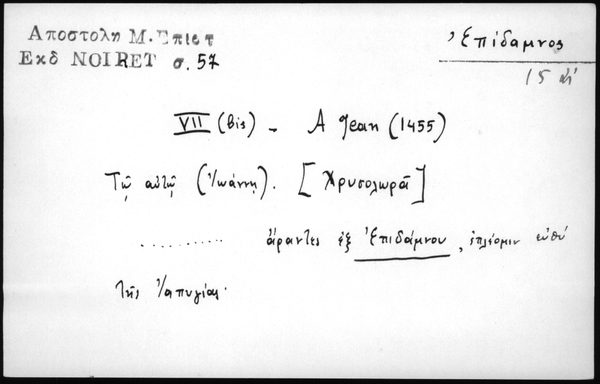 Αποστολη Μ. Επιστ
Εκδ NOIRET σ. 57
Ἐπίδαμνος
15 αἰ
VII (bis) - A Jean (1455)
Τῷ αὐτῷ (Ἰωάννῃ). [Χρυσολωρᾶ]
.......... ἄραντες ἐξ Ἐπιδάμνου, ἐπλέομεν εὐθύ
τῆς Ἰαπυγίας.